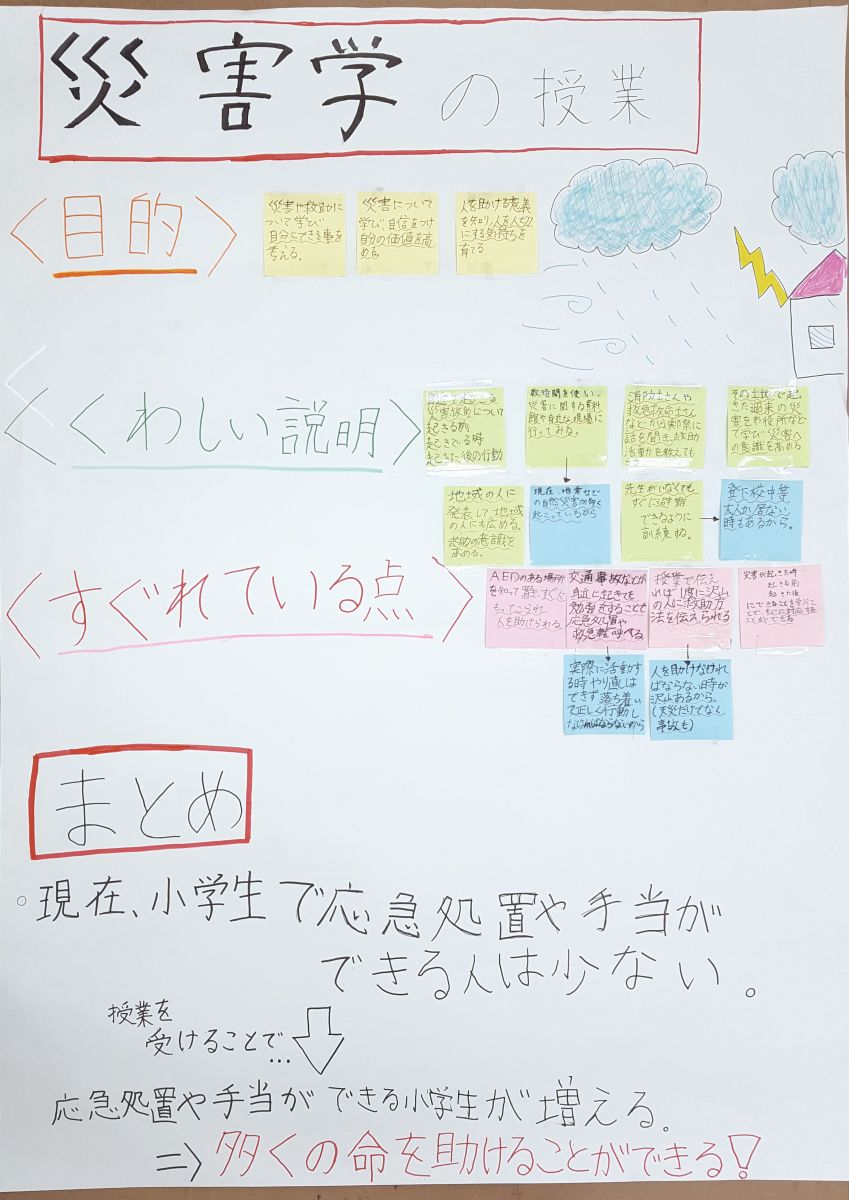 災害学の授業
〈目的〉
災害や救助に
ついて学び
自分にできる事を
考える。
災害について
学び、自信をつけ
自分の価値を高
める。
人を助ける意義
を知り、人を大切
にする気持ちを
育てる
〈くわしい説明〉
災害救助について
起きる前
起きている時
起きた後の行動
数時間を使い、
災害に関する資料
館や身近な現場に
行ってみる。
消防士さんや
救急救命士さん
などから実際に
話を聞き、救助
活動を教えても
その土地で起
きた過去の災
害を市役所など
で学び災害へ
の意識を高める
地域の人に
発表して地域
の人にも広める。
共助の意識を
高める。
現在、地震などで
の自然災害が多く
起こっているから
先生がいなくても
すぐに避難
できるように
訓練する。
登下校中等
大人が居ない
時もあるから。
〈すぐれている点〉
AEDのある場所
を知って置き、すぐに
もってこられ、
人を助けられる。
交通事故などが
身近に起きても
勉強をすることで
応急処置や
救急車呼べる
授業で伝え
れば1度に沢山
の人に救助方
法を伝えられる
災害が起きた時
起きる前
起きた後
にできることを学ぶこ
とで、すぐに対応する
ことができる
実際に活動す
る時やり直しは
できず落ち着い
て正しく行動し
なければならないから
人を助けなけれ
ばならない時が
沢山あるから。
(天災だけでなく
事故も)
まとめ
○現在、小学生で応急処置や手当が
できる人は少ない。
授業を
受けることで…
応急処置や手当ができる小学生が増える。
⇒多くの命を助けることができる!